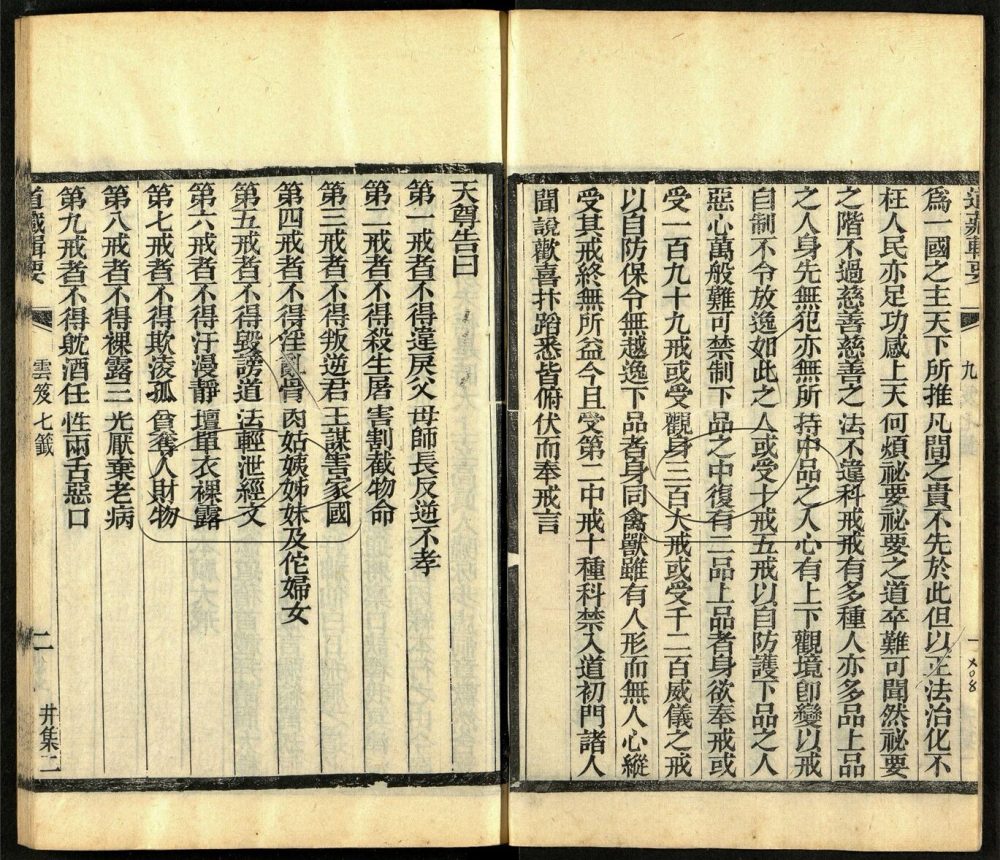 道藏輯要
九
一
408
爲一國之主天下所推凡間之貴不先於此但以正法治化不
枉人民亦足功感上天何煩祕要祕要之道卒難可聞然祕要
之階不過慈善慈善之法不違科戒戒有多種人亦多品上品
之人身先無犯亦無所持中品之人心有上下觀境卽變以戒
自制不令放逸如此之人或受十戒五戒以自防護下品之人
惡心萬般難可禁制下品之中復有二品上品者身欲奉戒或
受一百九十九戒或受觀身三百大戒或受千二百威儀之戒
以自防保令無越逸下品者身同禽獸雖有人形而無人心縱
受其戒終無所益今且受第二中戒十種科禁入道初門諸人
聞說歡喜抃蹈悉皆俯伏而奉戒言
天尊告曰
第一戒者不得違戾父母師長反逆不孝
第二戒者不得殺生屠害割截物命
第三戒者不得叛逆君王謀害家國
第四戒者不得淫亂骨肉姑姨姊妹及佗婦女
第五戒者不得毀謗道法輕泄經文
第六戒者不得汙漫靜壇單衣裸露
第七戒者不得欺凌孤貧奪人財物
第八戒者不得裸露三光厭棄老病
第九戒者不得躭酒任性兩舌惡口
道藏輯要
雲笈七籤
二
井集二